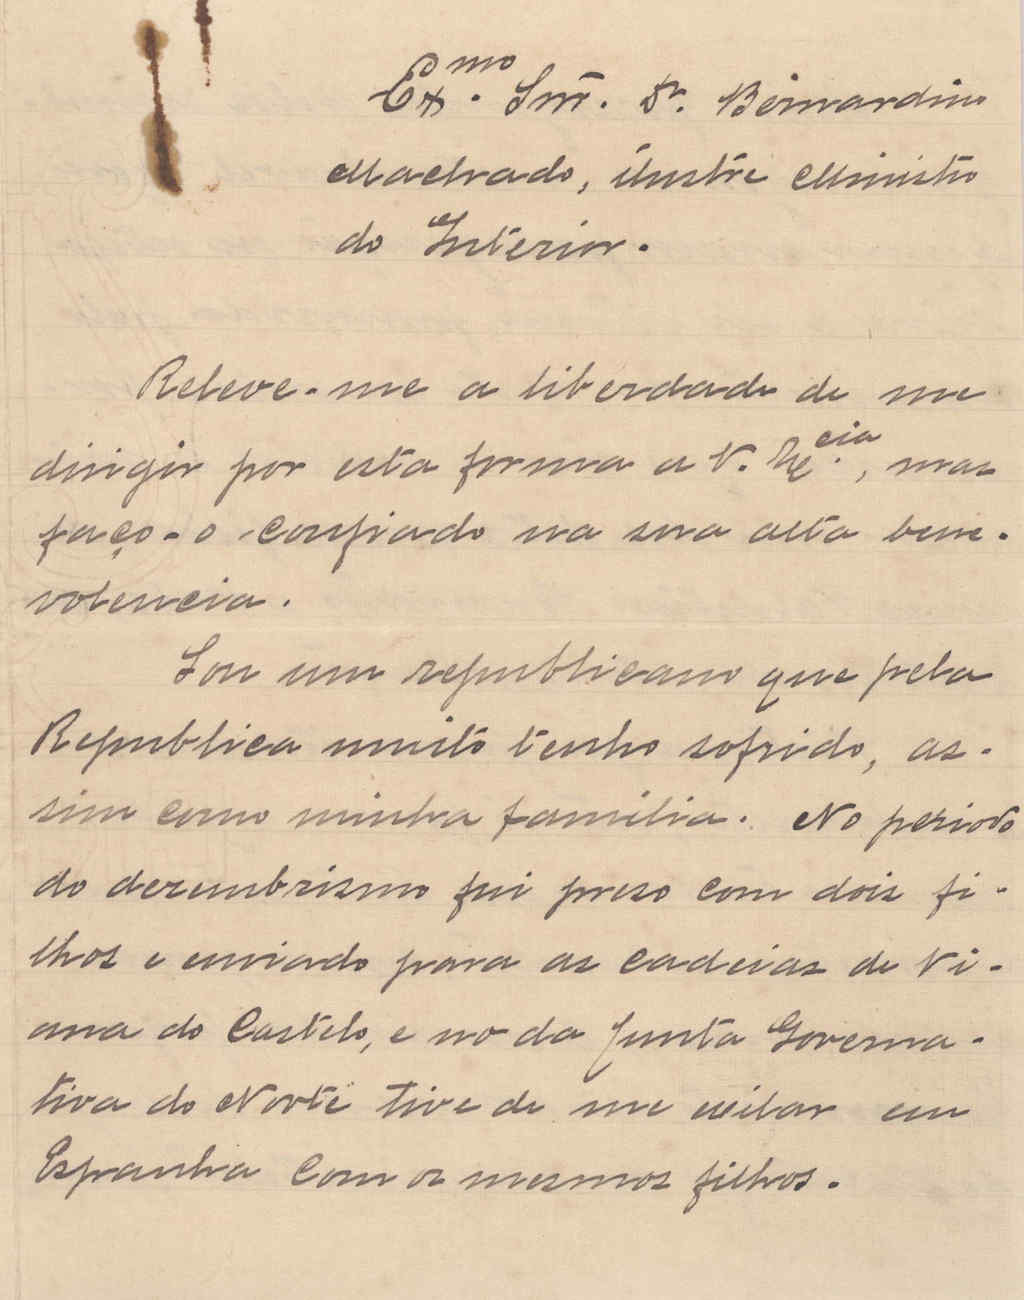 Ex.mo Snr. Dr. Bernardino
Machado, ilustre Ministro
do Interior.
Releve-me a liberdade de me
dirigir por esta forma a V. Ex.cia, mas
faço-o confiado na sua alta bene-
volencia.
Sou um republicano que pela
Republica muito tenho sofrido, as-
sim como minha familia. No periodo
do dezembrismo fui preso com dois fi-
lhos e enviado para as cadeias de Vi-
ana do Castelo, e no da Junta Governa-
tiva do Norte tive de me exilar em
Espanha com os mesmos filhos.